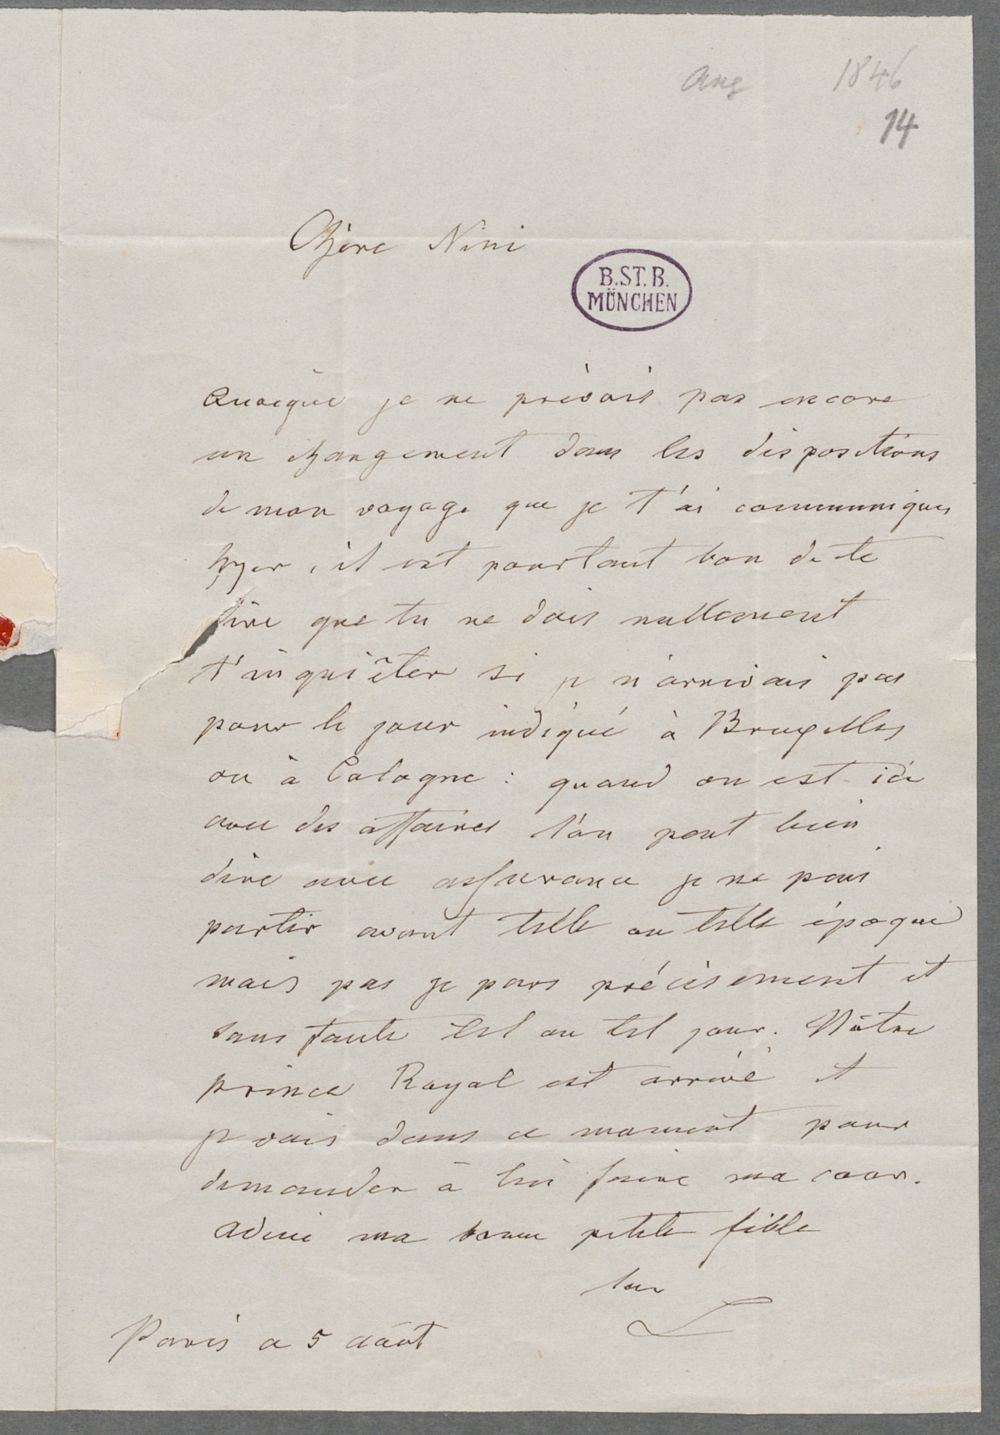 Aug 1846
14
Chère Nini
B.ST.B.
MÜNCHEN
Quoique je ne prévois pas encore
un changement dans les dispositions
de mon voyage que je t'ai communiqués
hyer, il est pourtant bon de te
dire que tu ne dois nullement
t'inquiêter si je n'arrivais pas
pour le jour indiqué à Bruxelles
ou à Cologne : quand on est ici
avec des affaires l'on peut bien
dire avec assurance je ne puis
partir avant telle ou telle époque
mais pas je pars précisement et
sans faute tel ou tel jour. Nôtre
prince Royal est arrivé et
je vais dans ce moment pour
demander à lui faire ma cour.
Adieu ma bonne petite fille
ton
L
Paris ce 5 août